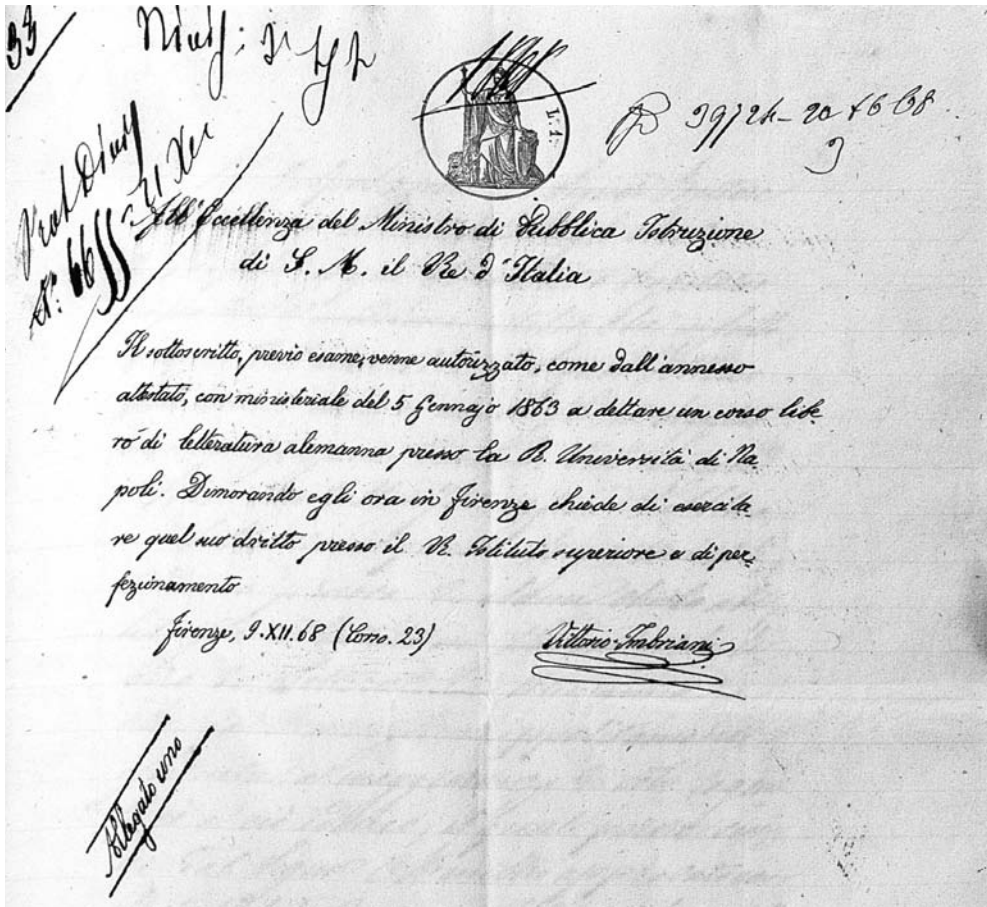 33
Prot Divis
N.° 6655
21 Xii
L. 1
39724 - 20 X6 68
All' Eccellenza del Ministro di Pubblica Istruzione
di S. M. il Re d'Italia
Il sottoscritto, previo esame, venne autorizzato, come dall'annesso
attestato, con ministeriale del 5 Gennajo 1863 a dettare un corso libe
ro di letteratura alemanna presso la R. Università di Na
poli. Dimorando egli ora in Firenze chiede di esercita
re quel suo dritto presso il R. Istituto superiore e di per,
fezionamento
Firenze, 9.XII.68 (Corso. 23)
Vittorio Imbriani
Allegato uno